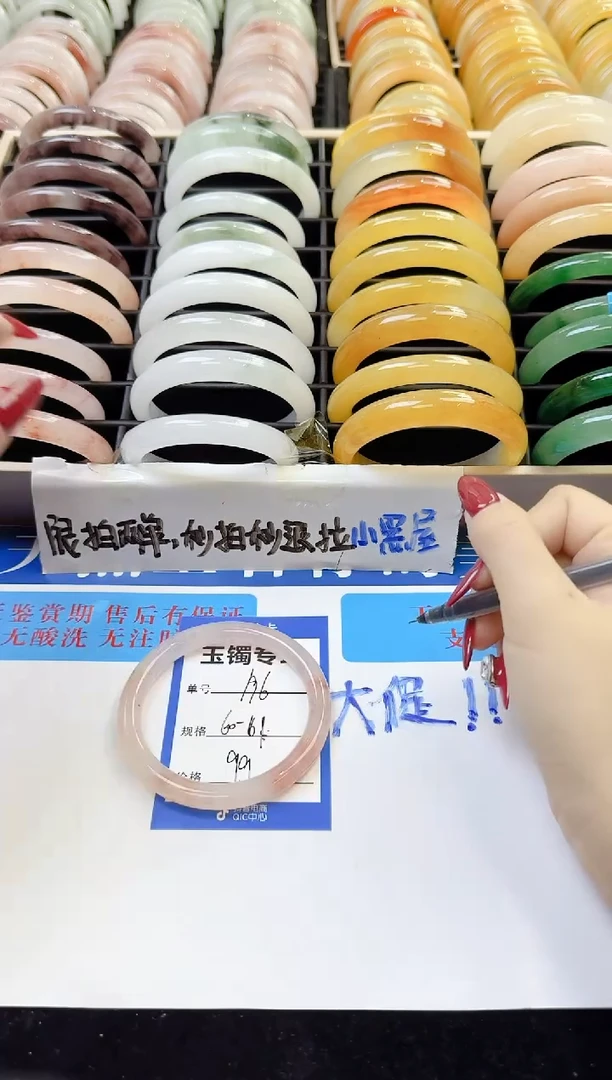 限拍两单,秒拍秒退拉小黑屋
鉴赏期 售后有保证
无酸洗 无注
支
玉镯专
单号 136
规格 60-61
价格 99
大促!!
QIC中心